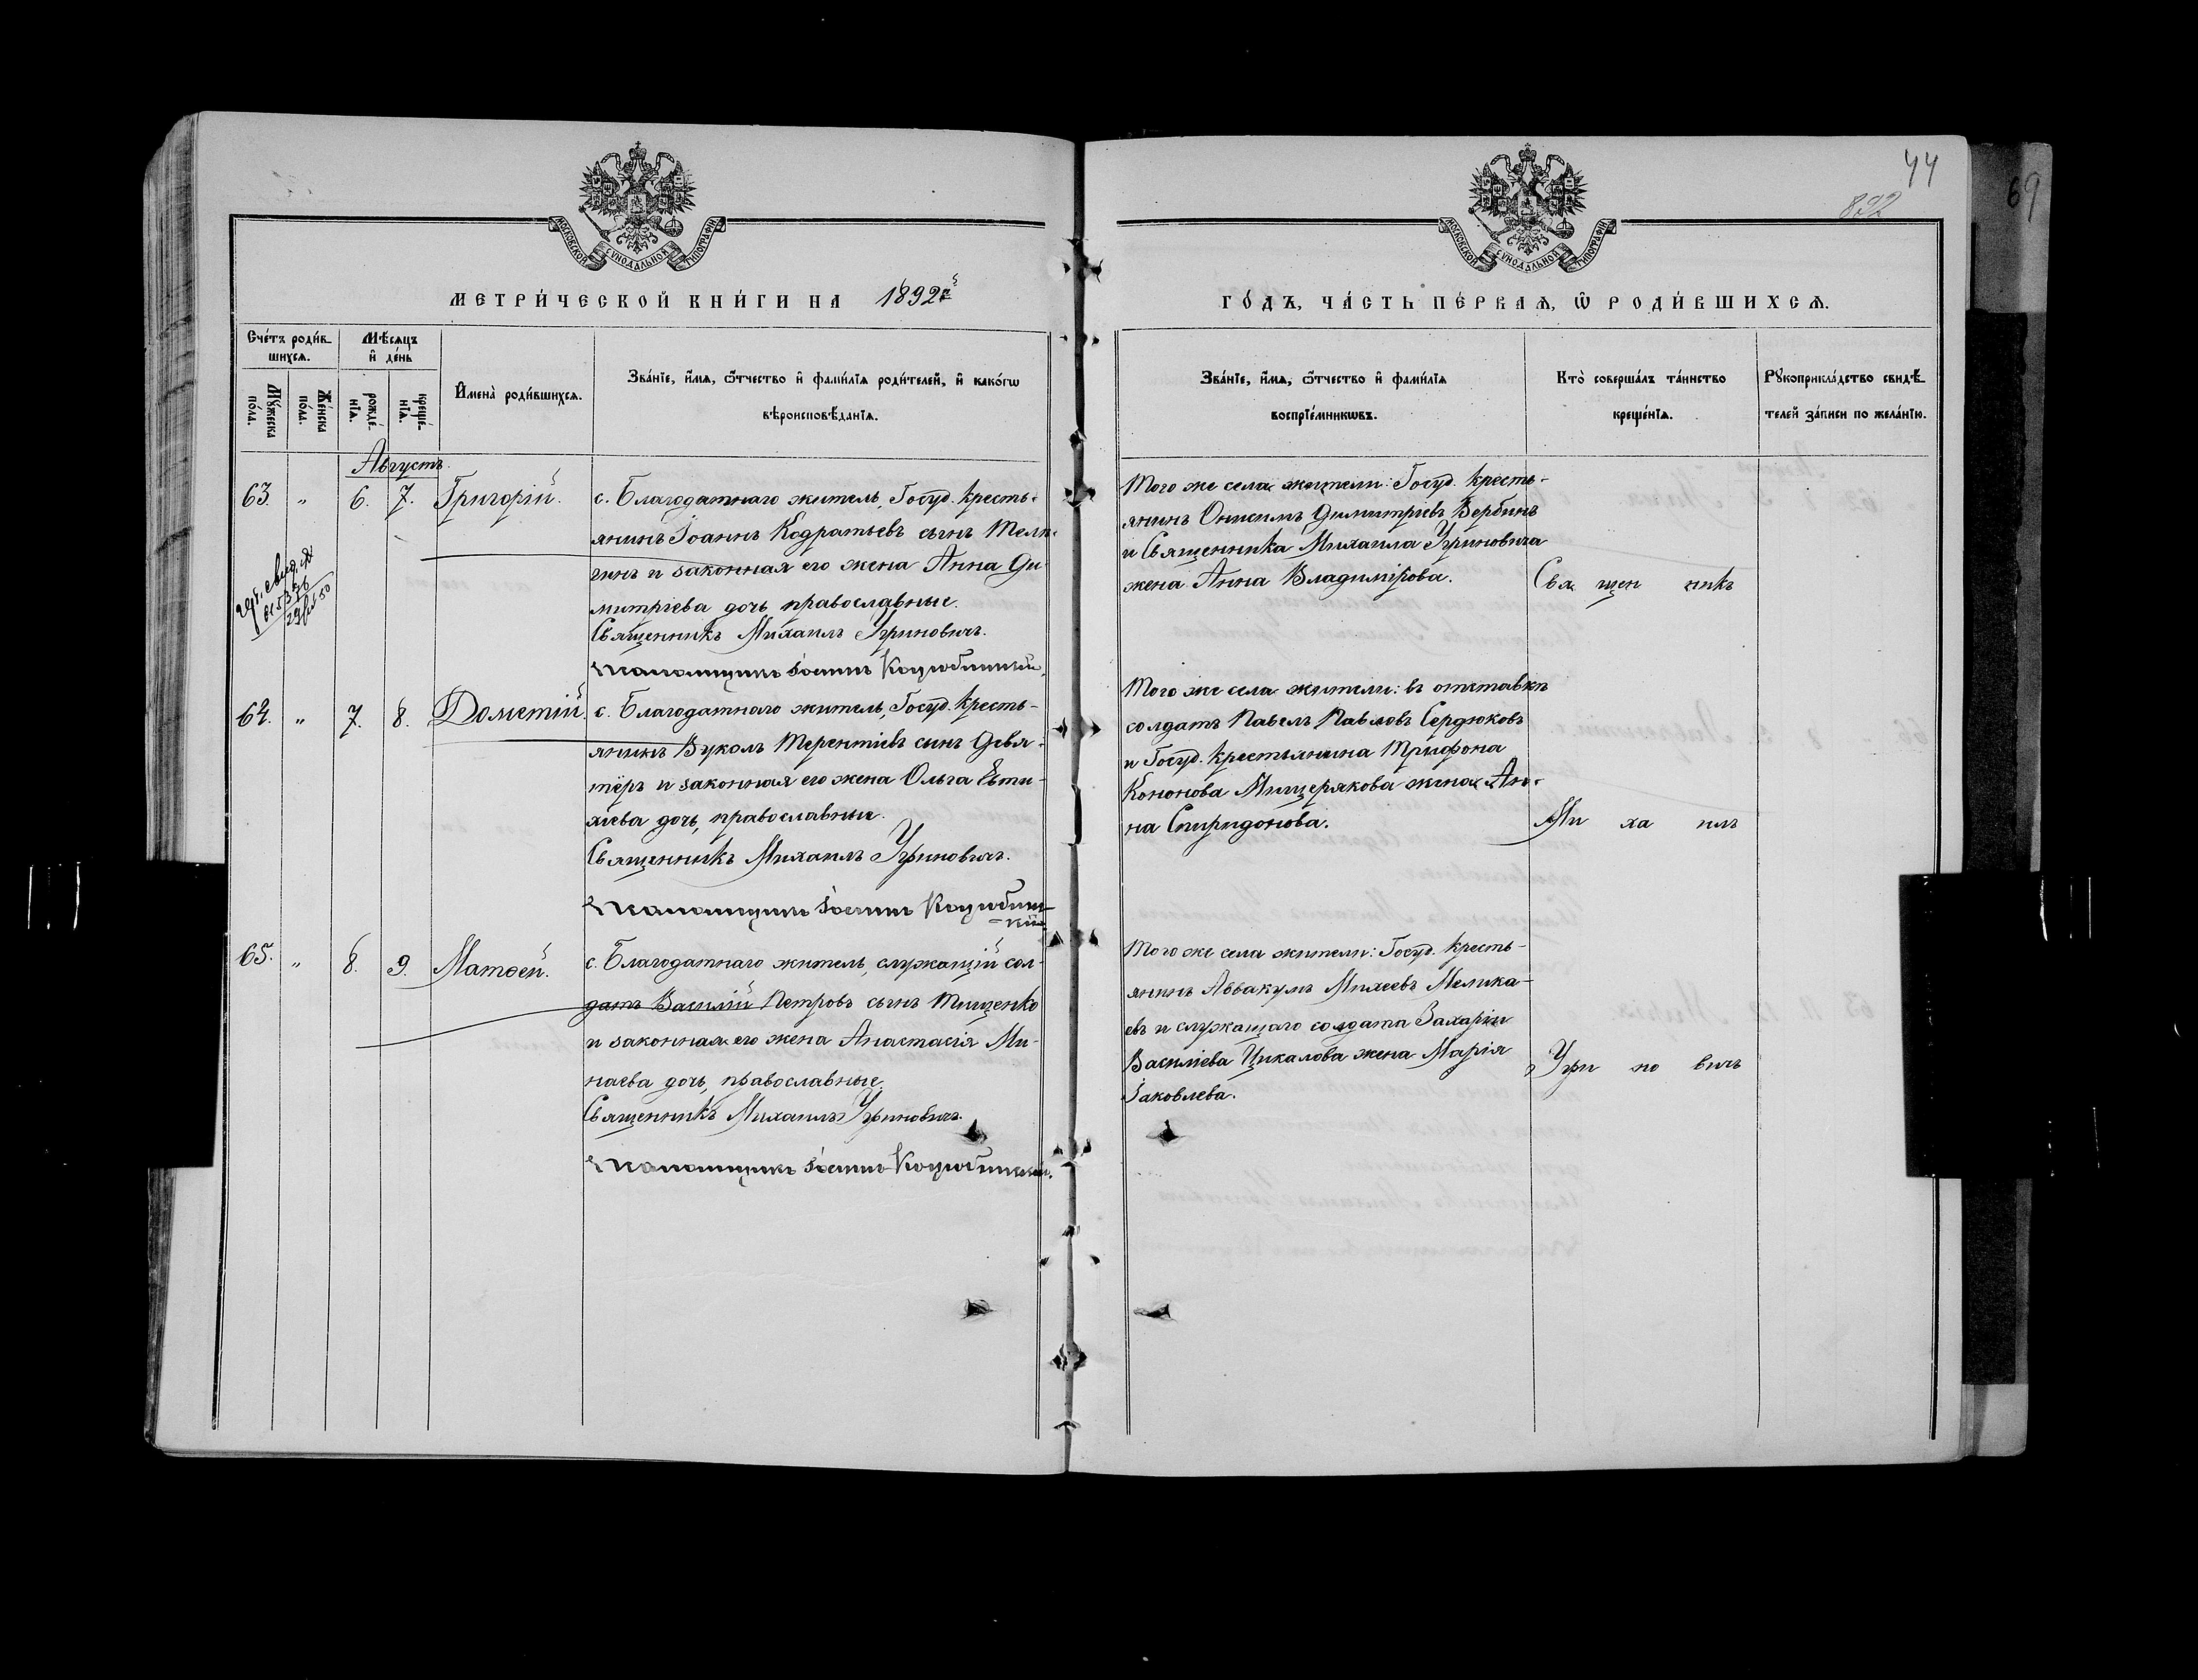 44
892
69
МОСКОВСКОЙ СѴНОДАЛЬНОЙ ТИПОГРАФІИ
МОСКОВСКОЙ СѴНОДАЛЬНОЙ ТИПОГРАФІИ
МЕТРИ́ЧЕСКОЙ КНИ́ГИ НА 1892й
ГО́ДЪ, ЧА́СТЬ ПЕ́РВАѦ, Ѿ РОДИ́ВШИХСѦ.
Сче́тъ роди́в-
шихсѧ.
Мѣ́сѧцъ
и҆ де́нь
Мꙋ́жеска
по́ла.
Же́нска
по́ла.
рожде́-
нїѧ.
креще́-
нїѧ.
И҆мена̀ роди́вшихсѧ.
Зва́нїе, и҆́мѧ, ѻ҆́тчество и҆ фами́лїѧ роди́телей, и҆ како́гѡ
вѣроисповѣ́данїѧ.
Зва́нїе, и҆́мѧ, ѻ҆́тчество и҆ фами́лїѧ
воспрїе́мникѡвъ.
Кто̀ соверша́лъ та́инство
креще́нїѧ.
Рꙋкоприкла́дство свидѣ́-
телей за́писи по жела́нїю.
Августъ.
63. " 6. 7. Григорій.
с. Благодатнаго житель, Госуд. кресть-
янинъ Іоаннъ Кодратьевъ сынъ Мели-
гинъ и законная его жена Анна Ди-
митріева дочь православные.
Священникъ Михаилъ Угриновичъ.
Псаломщикъ Іоаннъ Коцюбинскій.
Того же села жители: Госуд. кресть-
янинъ Онисимъ Димитріевъ Вербинъ
и Священника Михаила Угриновича
жена Анна Владимірова.
Свя щен никъ
64. " 7. 8. Дометій.
с. Благодатнаго житель, Госуд. кресть-
янинъ Вуколъ Терентіевъ сынъ Девя-
тёръ и законная его жена Ольга Евти-
хіева дочь, православные.
Священникъ Михаилъ Угриновичъ.
Псаломщикъ Іоаннъ Коцюбин-
-кій
Того же села жители: въ отставкѣ
солдатъ Павелъ Павловъ Сердюковъ
и Госуд. крестьянина Трифона
Кононова Мищерякова жена Ан-
на Спиридонова.
Ми ха илъ
65. " 8. 9. Матѳей.
с. Благодатнаго житель, служащій сол-
датъ Василій Петровъ сынъ Тищенко
и законная его жена Анастасія Ми-
наева дочь, православные.
Священникъ Михаилъ Угриновичъ.
Псаломщикъ Іоаннъ Коцюбинскій.
Того же села жители: Госуд. кресть-
янинъ Аввакумъ Михеевъ Мелика-
евъ и служащаго солдата Захарія
Василіева Цикалова жена Марія
Іаковлева.
Угри но вичъ